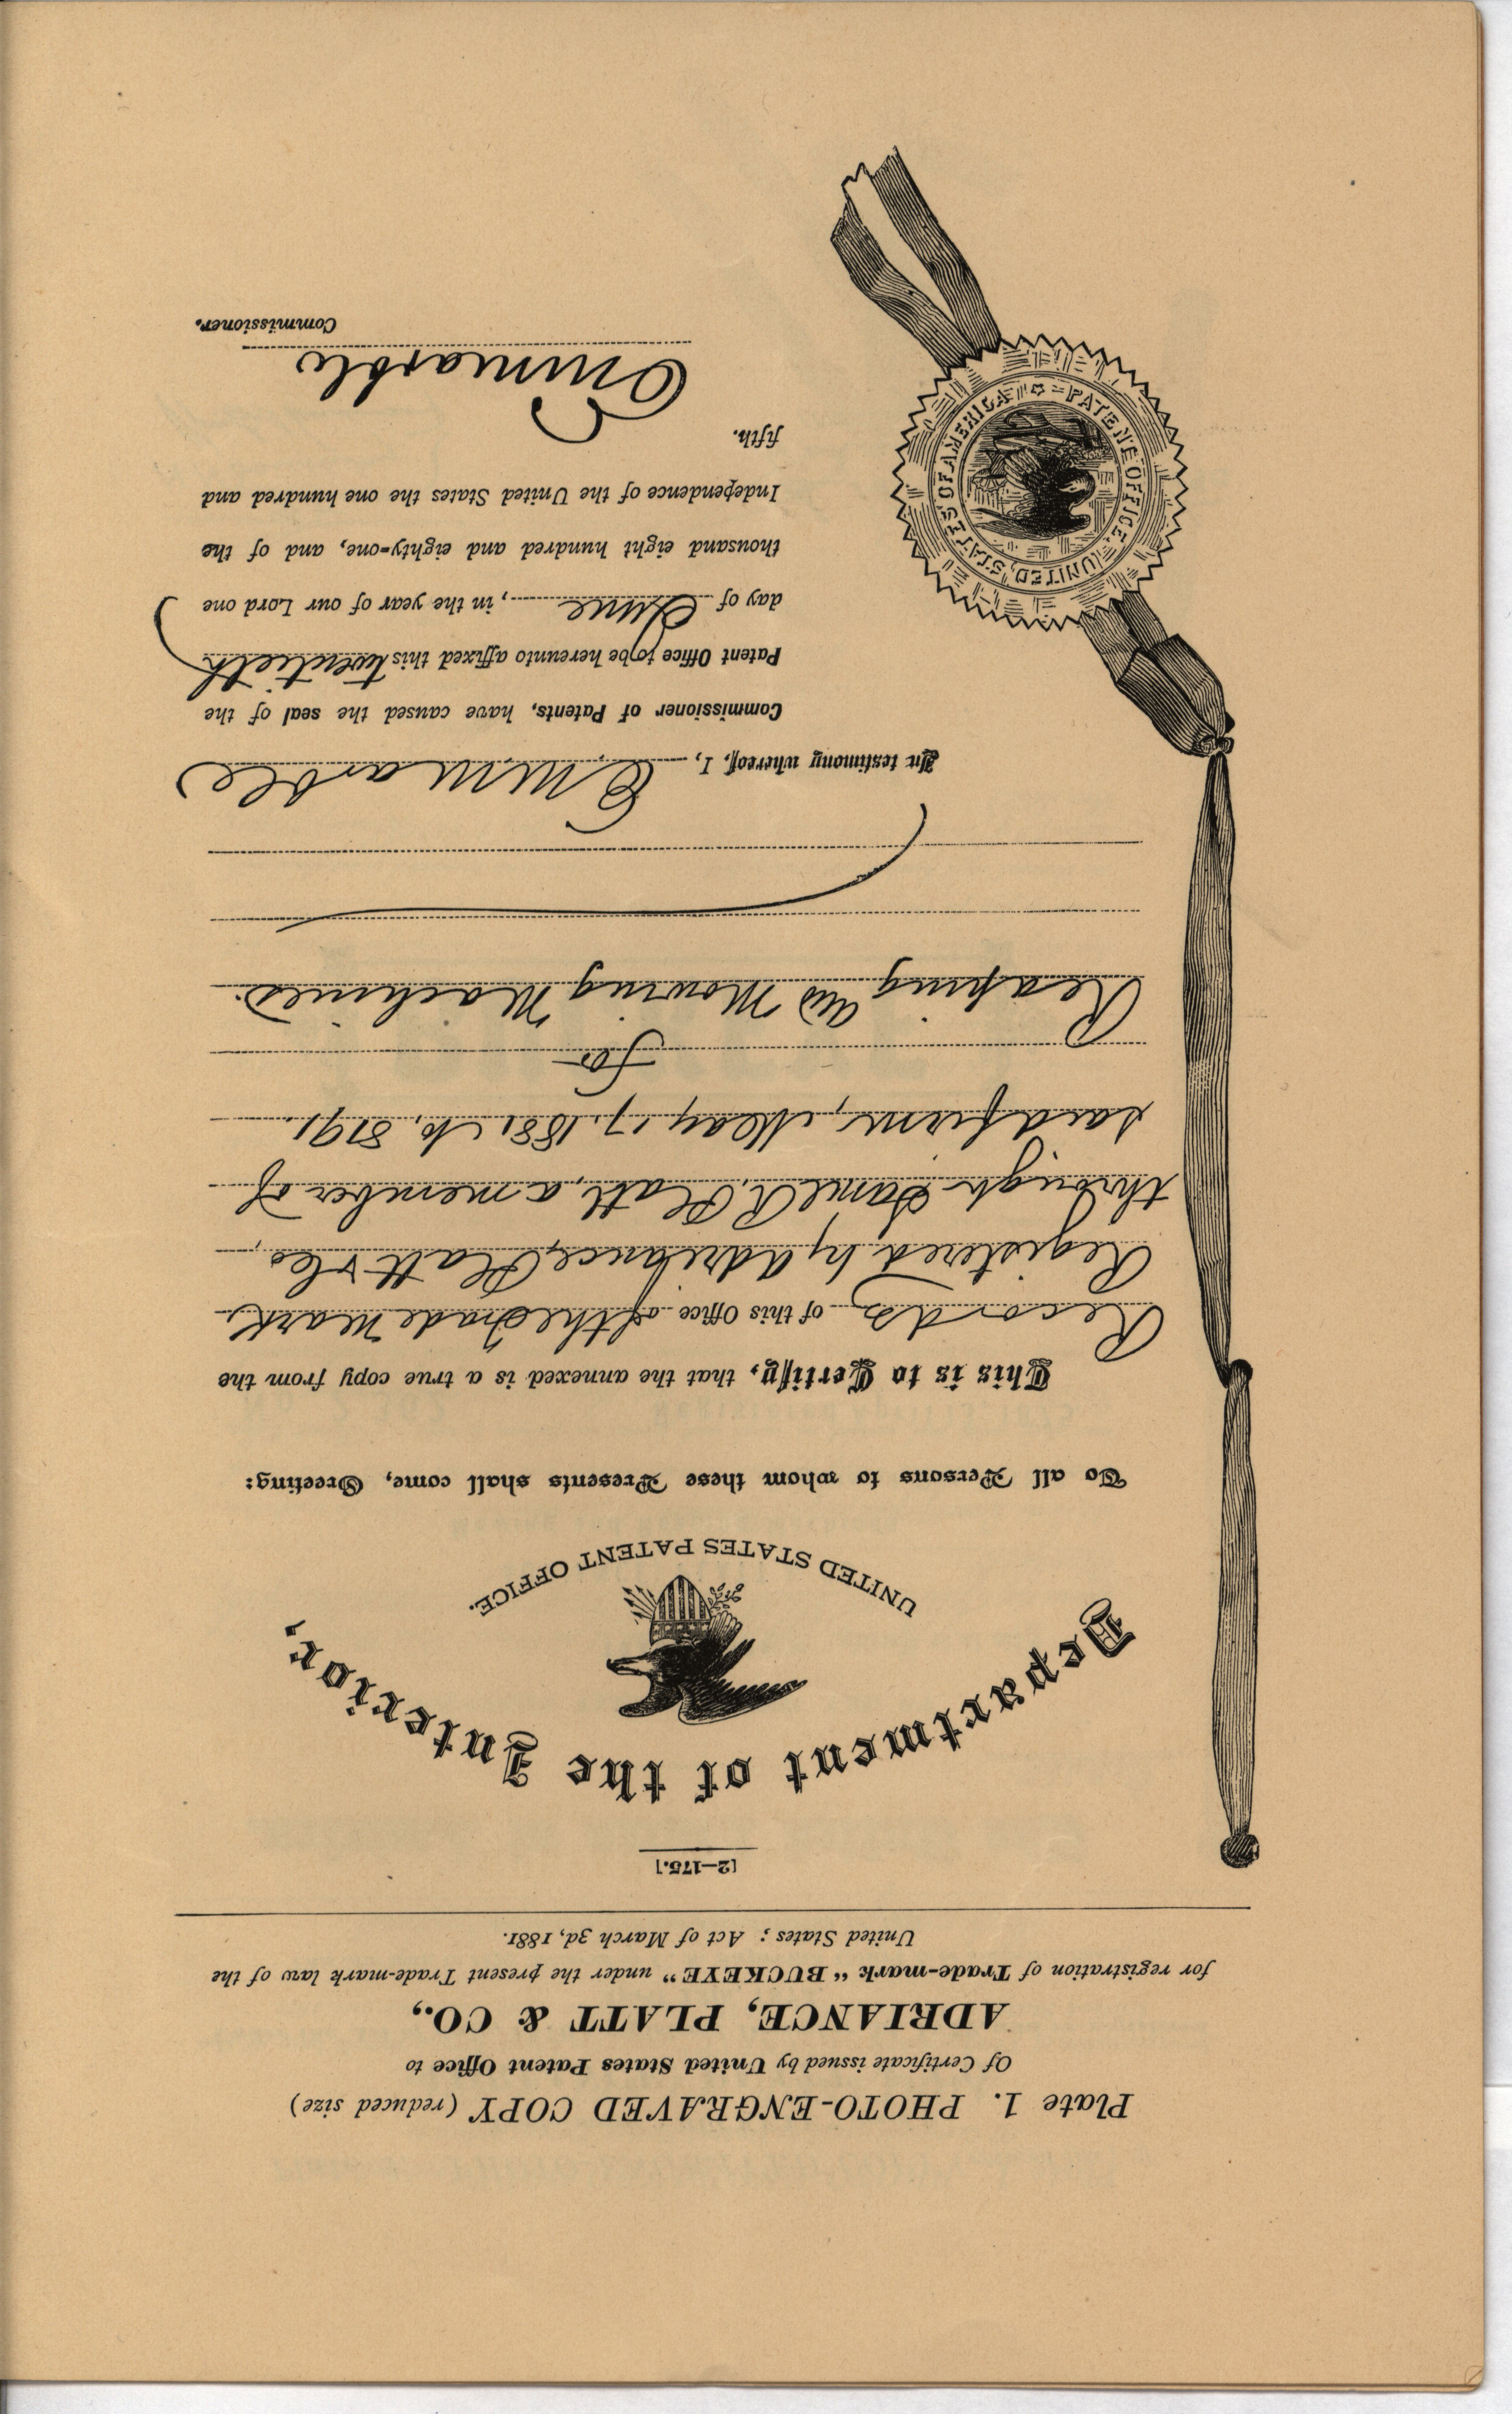 Plate 1. PHOTO-ENGRAVED COPY (reduced size)
Of Certificate issued by United States Patent Office to
ADRIANCE, PLATT & CO.,
for registration of Trade-mark "BUCKEYE" under the present Trade-mark law of the
United States; Act of March 3d, 1881.
[2—175.]
Department of the Interior,
UNITED STATES PATENT OFFICE.
To all Persons to whom these Presents shall come, Greeting:
This is to Certify, that the annexed is a true copy from the
Records of this Office of the Trade Mark,
Registered by Adriance, Platt & Co,
through Samel R. Platt, a member of
said firm, May 17, 1881, No. 8191.
for
Reaping and Mowing Machines.
In testimony whereof, I, E. M. Marble
Commissioner of Patents, have caused the seal of the
Patent Office to be hereunto affixed this twentieth
day of June, in the year of our Lord one
thousand eight hundred and eighty-one, and of the
Independence of the United States the one hundred and
fifth.
EMMarble
Commissioner.
PATENT OFFICE. UNITED STATES OF AMERICA